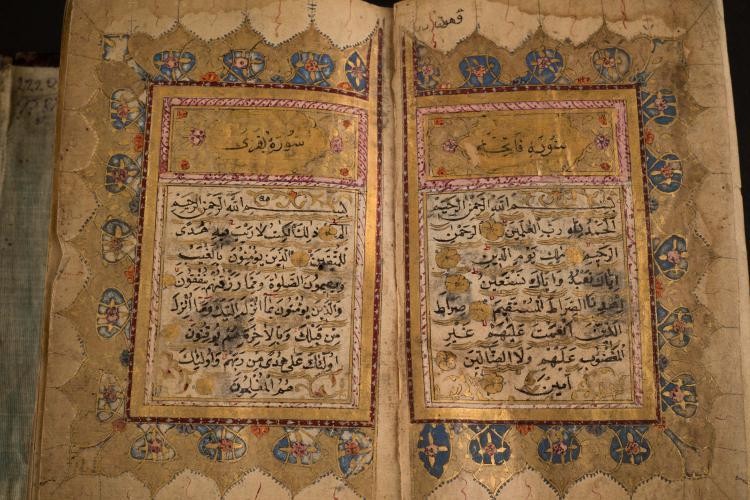 سورة فاتحة
بسم الله الرحمن الرحيم
الحمد لله رب العلمين الرحمن
الرحيم ملك يوم الدين
اياك نعبد واياك نستعين
اهدنا الصراط المستقيم صراط
الذين انعمت عليهم غير
المغضوب عليهم ولا الضالين
آمين
سورة البقرى
بسم الله الرحمن الرحيم
الم ذلك الكتب لا ريب فيه هدى
للمتقين الذين يؤمنون بالغيب
ويقيمون الصلوة ومما رزقنهم ينفقون
والذين يؤمنون بما انزل اليك وما انزل
من قبلك وبالاخرة هم يوقنون
اولئك على هدى من ربهم واولئك
هم المفلحون